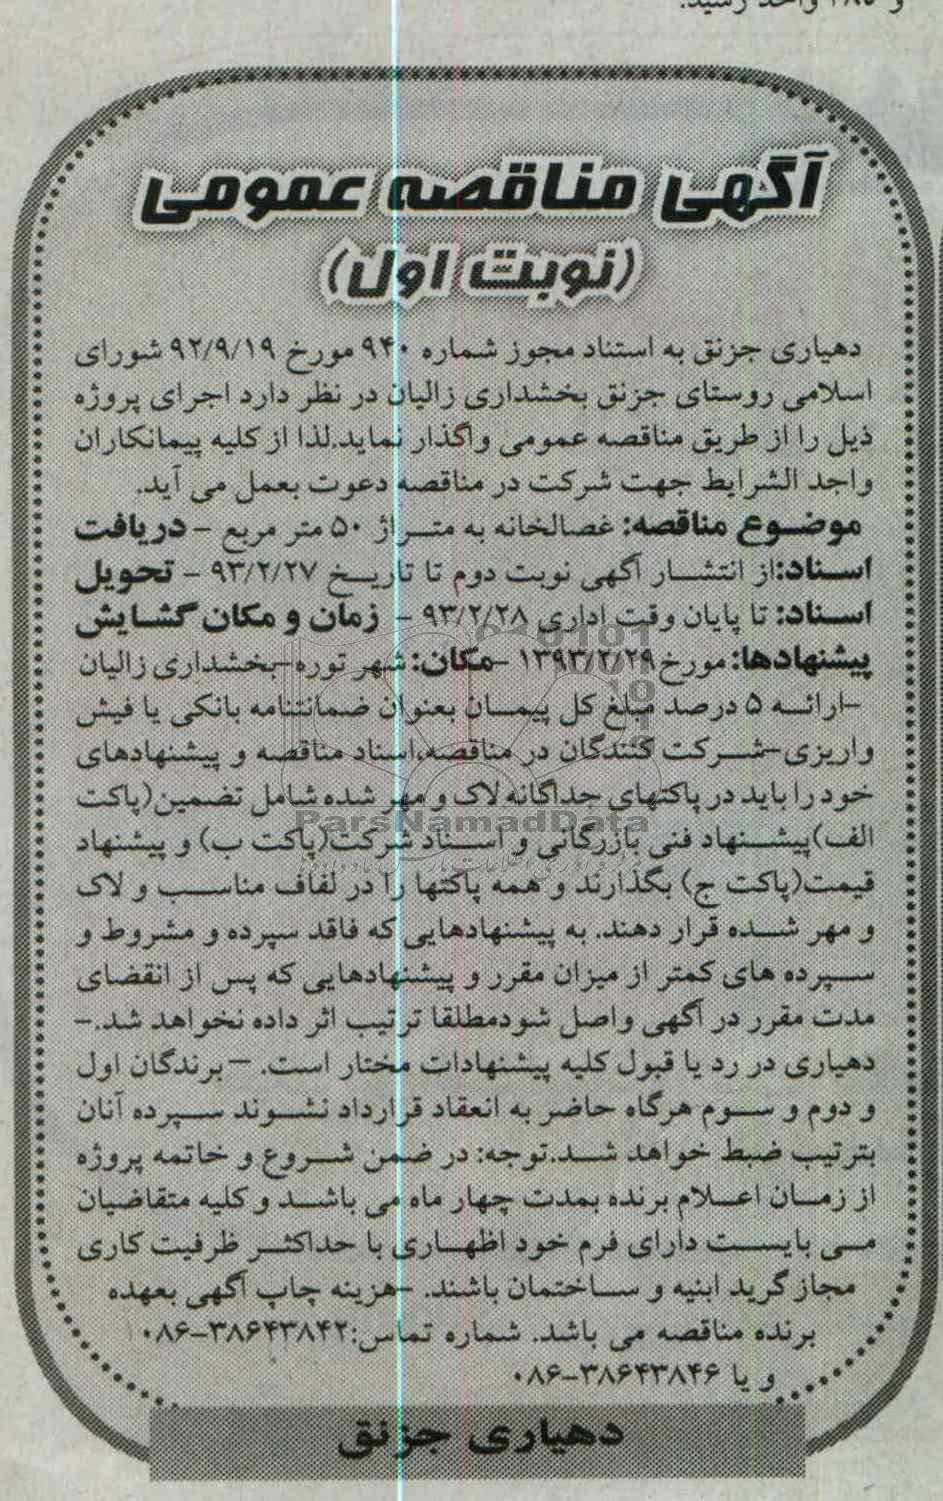 و ۲۸۵ واحد رسید.
آگهی مناقصه عمومی
(نوبت اول)
دهیاری جزنق به استناد مجوز شماره ۹۴۰ مورخ ۹۲/۹/۱۹ شورای
اسلامی روستای جزنق بخشداری زالیان در نظر دارد اجرای پروژه
ذیل را از طریق مناقصه عمومی واگذار نماید.لذا از کلیه پیمانکاران
واجد الشرایط جهت شرکت در مناقصه دعوت بعمل می آید.
موضوع مناقصه: غصالخانه به متراژ ۵۰ متر مربع - دریافت
اسناد:از انتشار آگهی نوبت دوم تا تاریخ ۹۳/۲/۲۷ - تحویل
اسناد: تا پایان وقت اداری ۹۳/۲/۲۸ - زمان و مکان گشایش
پیشنهادها: مورخ ۱۳۹۳/۲/۲۹ -مکان: شهر توره-بخشداری زالیان
-ارائه ۵ درصد مبلغ کل پیمان بعنوان ضمانتنامه بانکی یا فیش
واریزی-شرکت کنندگان در مناقصه،اسناد مناقصه و پیشنهادهای
خود را باید در پاکتهای جداگانه لاک و مهر شده شامل تضمین(پاکت
الف)پیشنهاد فنی بازرگانی و اسناد شرکت(پاکت ب) و پیشنهاد
قیمت(پاکت ج) بگذارند و همه پاکتها را در لفاف مناسب و لاک
و مهر شده قرار دهند. به پیشنهادهایی که فاقد سپرده و مشروط و
سپرده های کمتر از میزان مقرر و پیشنهادهایی که پس از انقضای
مدت مقرر در آگهی واصل شودمطلقا ترتیب اثر داده نخواهد شد.-
دهیاری در رد یا قبول کلیه پیشنهادات مختار است. -برندگان اول
و دوم و سوم هرگاه حاضر به انعقاد قرارداد نشوند سپرده آنان
بترتیب ضبط خواهد شد.توجه: در ضمن شروع و خاتمه پروژه
از زمان اعلام برنده بمدت چهار ماه می باشد و کلیه متقاضیان
می بایست دارای فرم خود اظهاری با حداکثر ظرفیت کاری
مجاز گرید ابنیه و ساختمان باشند. -هزینه چاپ آگهی بعهده
برنده مناقصه می باشد. شماره تماس:۳۸۶۴۳۸۴۲-۰۸۶
و یا ۳۸۶۴۳۸۴۶-۰۸۶
دهیاری جزنق
ParsNamadData